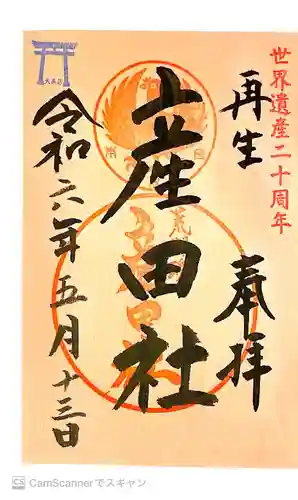 世界遺産二十周年
再生
奉拝
産田社
令和六年五月十三日
大斎原
CamScannerでスキャン